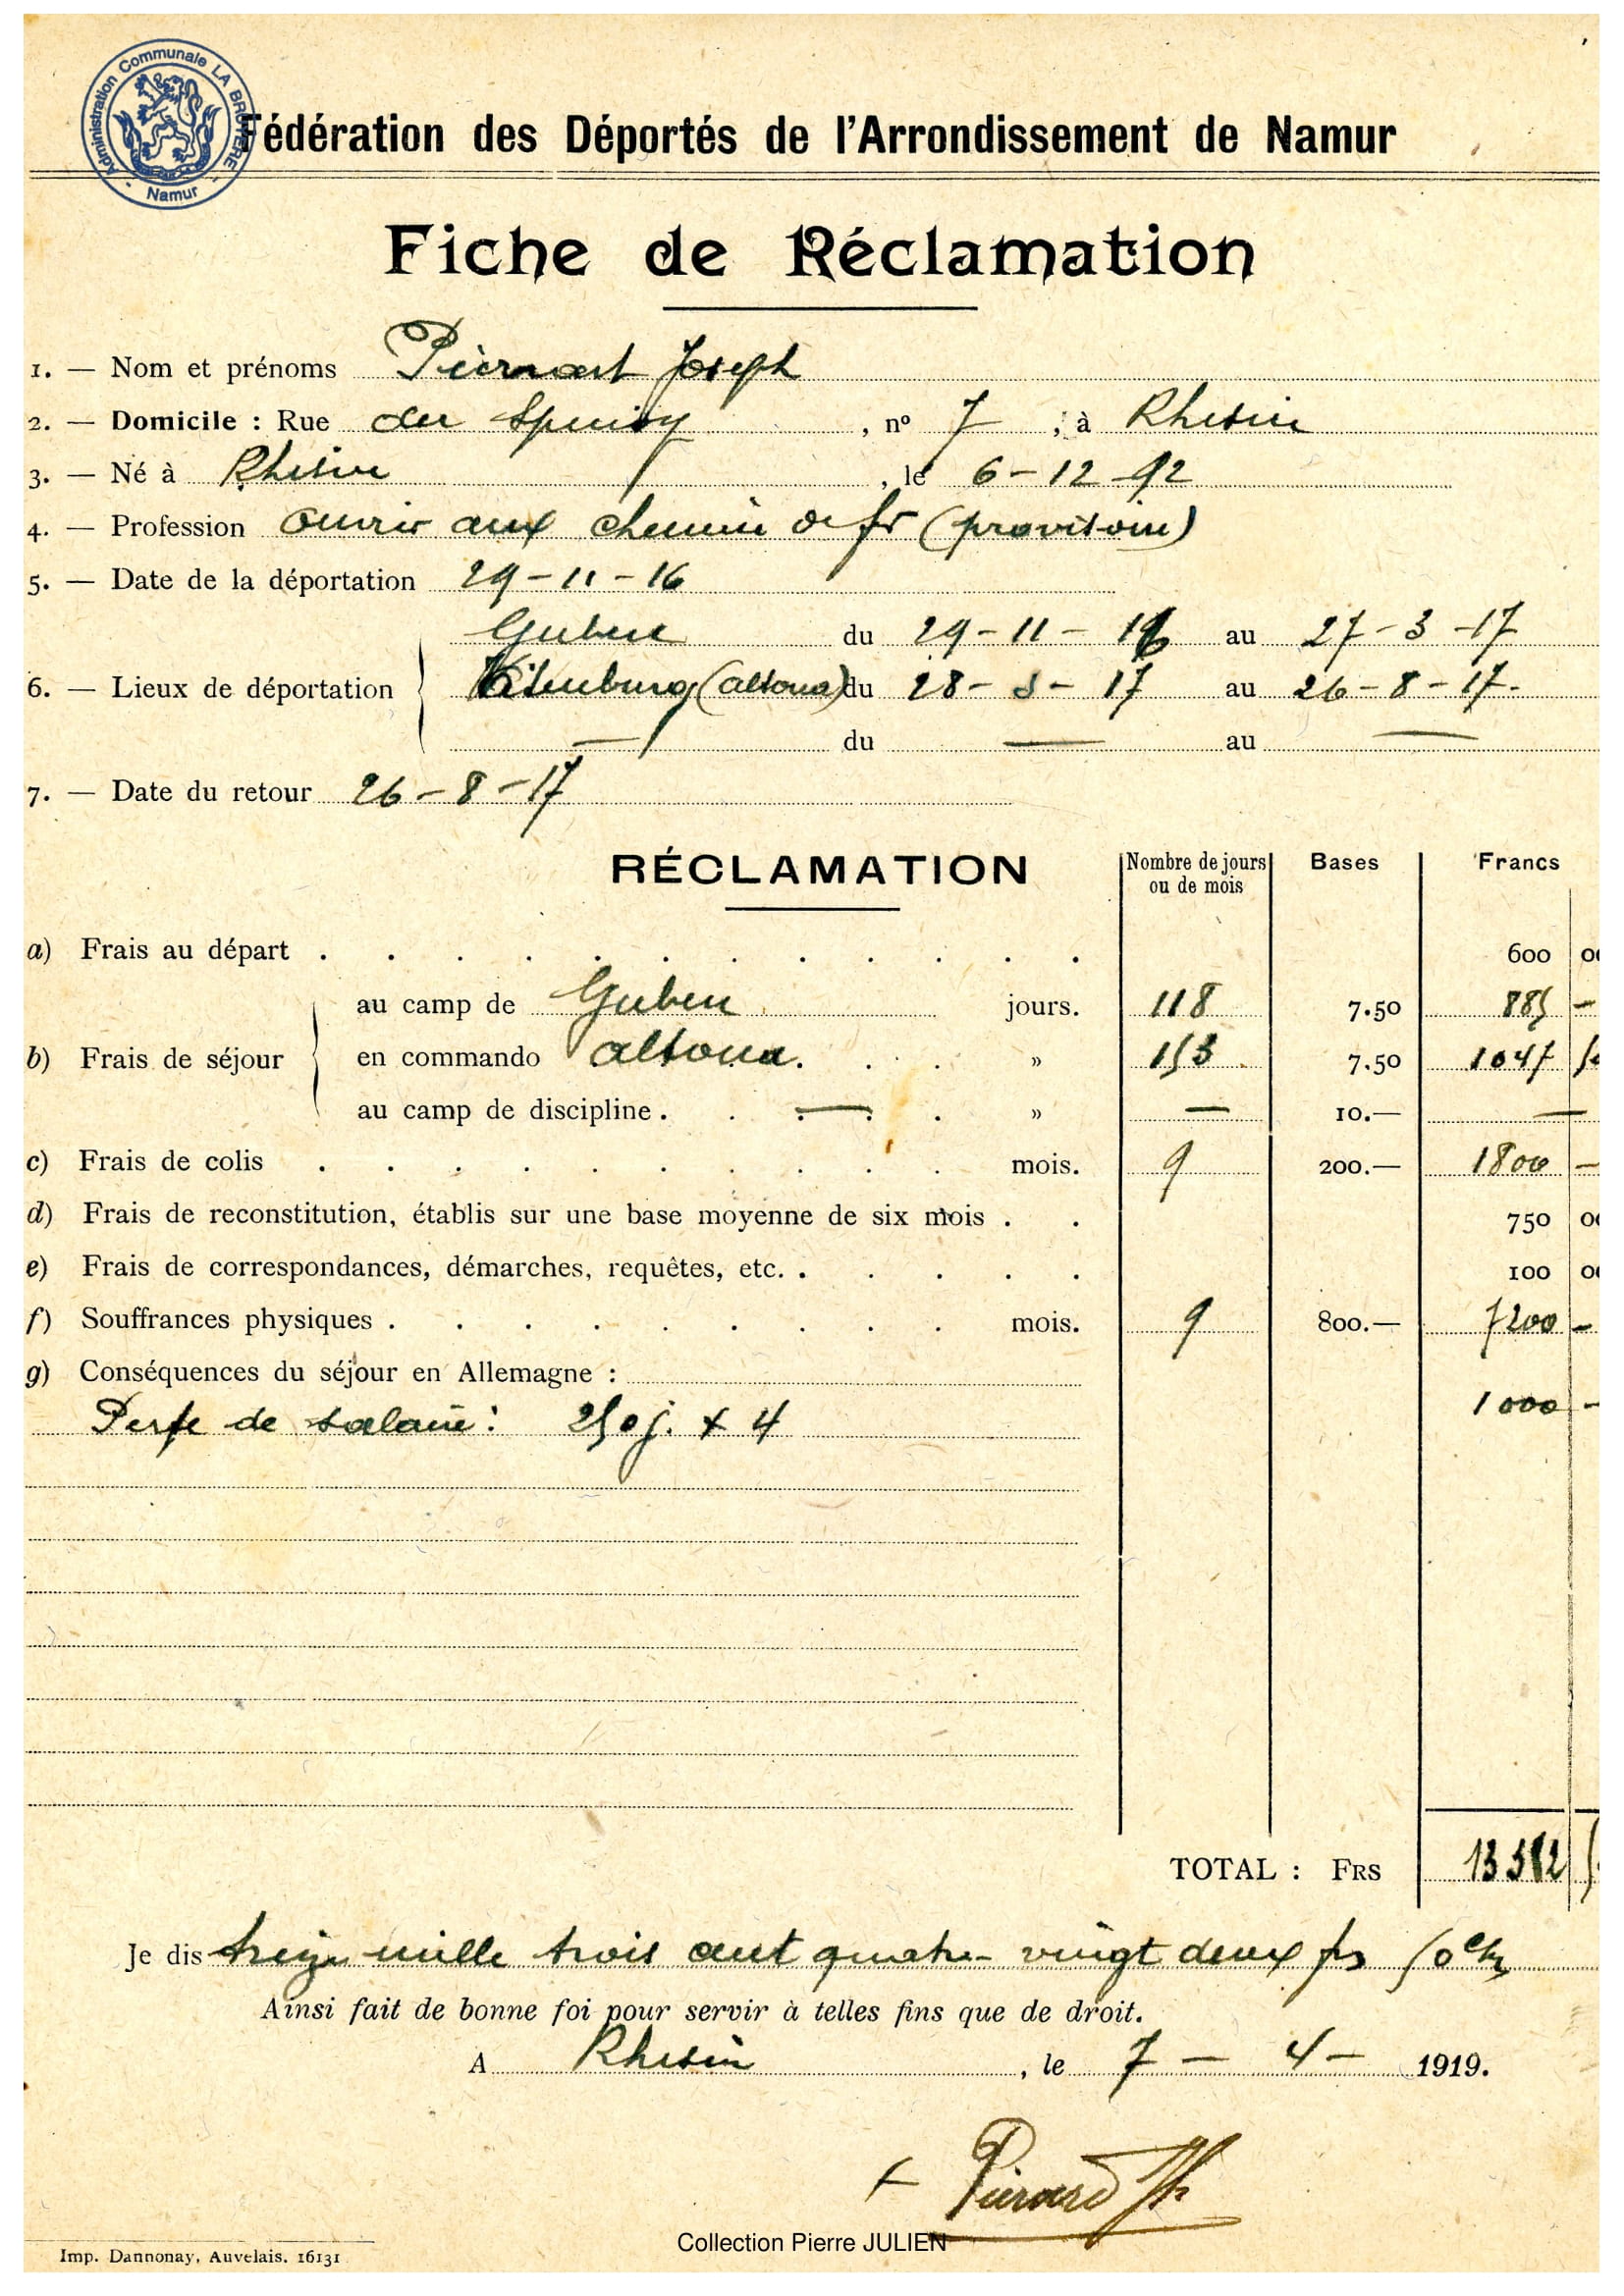 Administration Communale LA BRUYERE - Namur -
Fédération des Déportés de l'Arrondissement de Namur
Fiche de Réclamation
1. — Nom et prénoms Piernart Joseph
2. — Domicile : Rue du Spinoy, n° 7, à Rhisne
3. — Né à Rhisne, le 6-12-92
4. — Profession ouvrier aux chemin de fer (provisoire)
5. — Date de la déportation 29-11-16
Guben du 29-11-16 au 27-3-17
6. — Lieux de déportation (altona) du 28-3-17 au 26-8-17-
— du — au —
7. — Date du retour 26-8-17
RÉCLAMATION Nombre de jours ou de mois Bases Francs
a) Frais au départ . . . . . . . . . . . . 600
au camp de Guben jours. 118 7.50 885 -
b) Frais de séjour en commando altona. . . » 153 7.50 1047
au camp de discipline . . — . . » — 10.— —
c) Frais de colis . . . . . . . . . . mois. 9 200.— 1800 -
d) Frais de reconstitution, établis sur une base moyenne de six mois . . 750
e) Frais de correspondances, démarches, requêtes, etc. . . . . . 100
f) Souffrances physiques . . . . . . . . . mois. 9 800.— 7200 -
g) Conséquences du séjour en Allemagne :
Perte de salaire : 250 j. x 4 1000 -
TOTAL : FRS 13382
Je dis treize mille trois cent quatre-vingt deux frs 50 cts
Ainsi fait de bonne foi pour servir à telles fins que de droit.
A Rhisne, le 7 - 4 - 1919.
+ Jh
Collection Pierre JULIEN
Imp. Dannonay, Auvelais. 16131